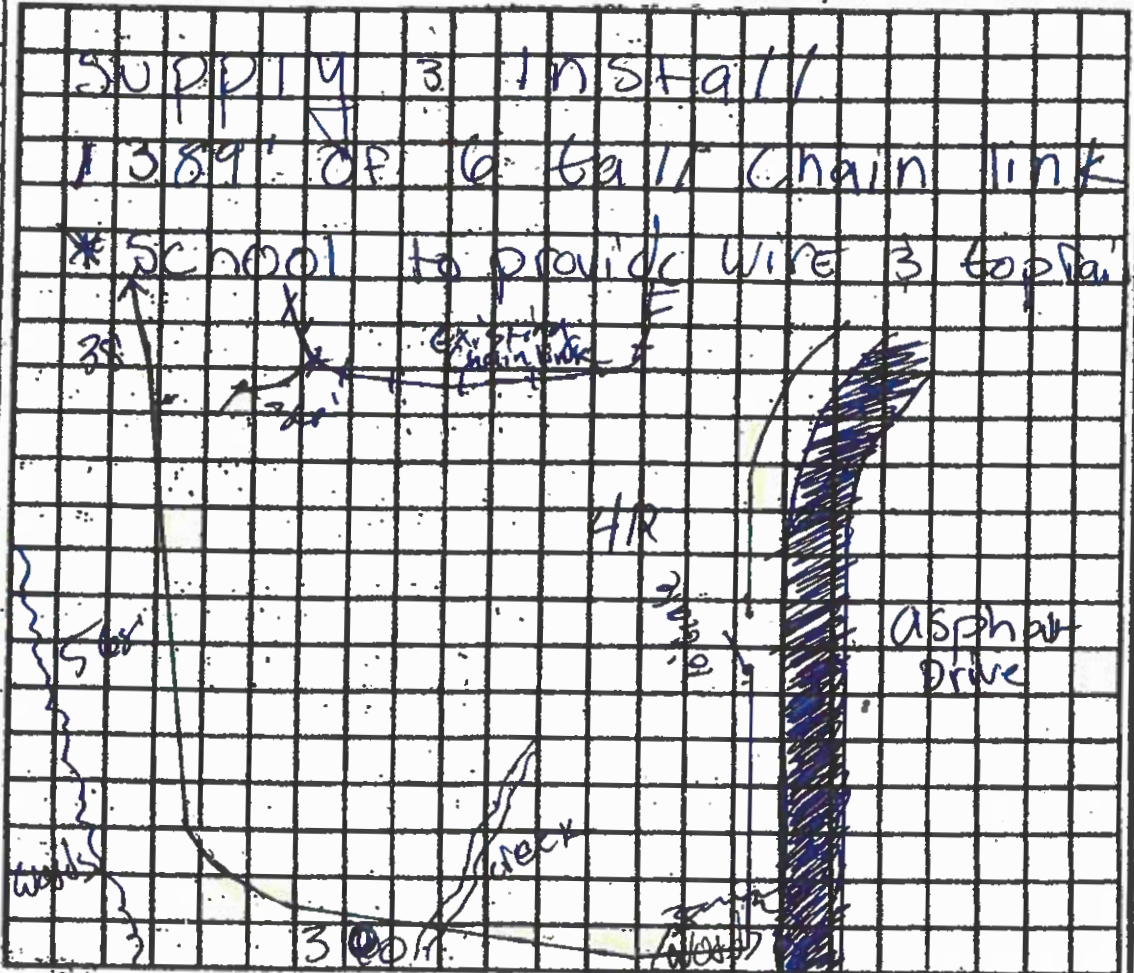 Supply & Install
1389' of 6 tall Chain link
* School to provide wire & toprai
38'
existing
chain link
412
Asphalt
Drive
creek
woods
woods